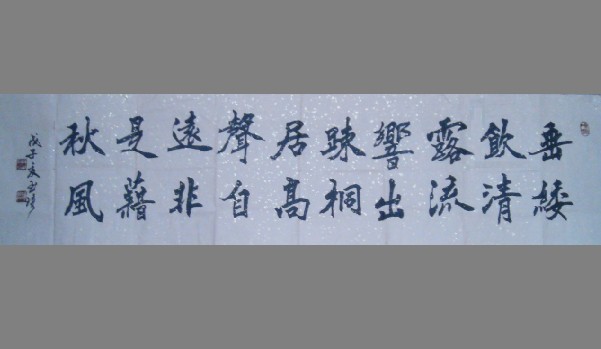 垂緌
飲清
露流
響出
踈桐
居高
聲自
遠非
是藉
秋風
戊子夏